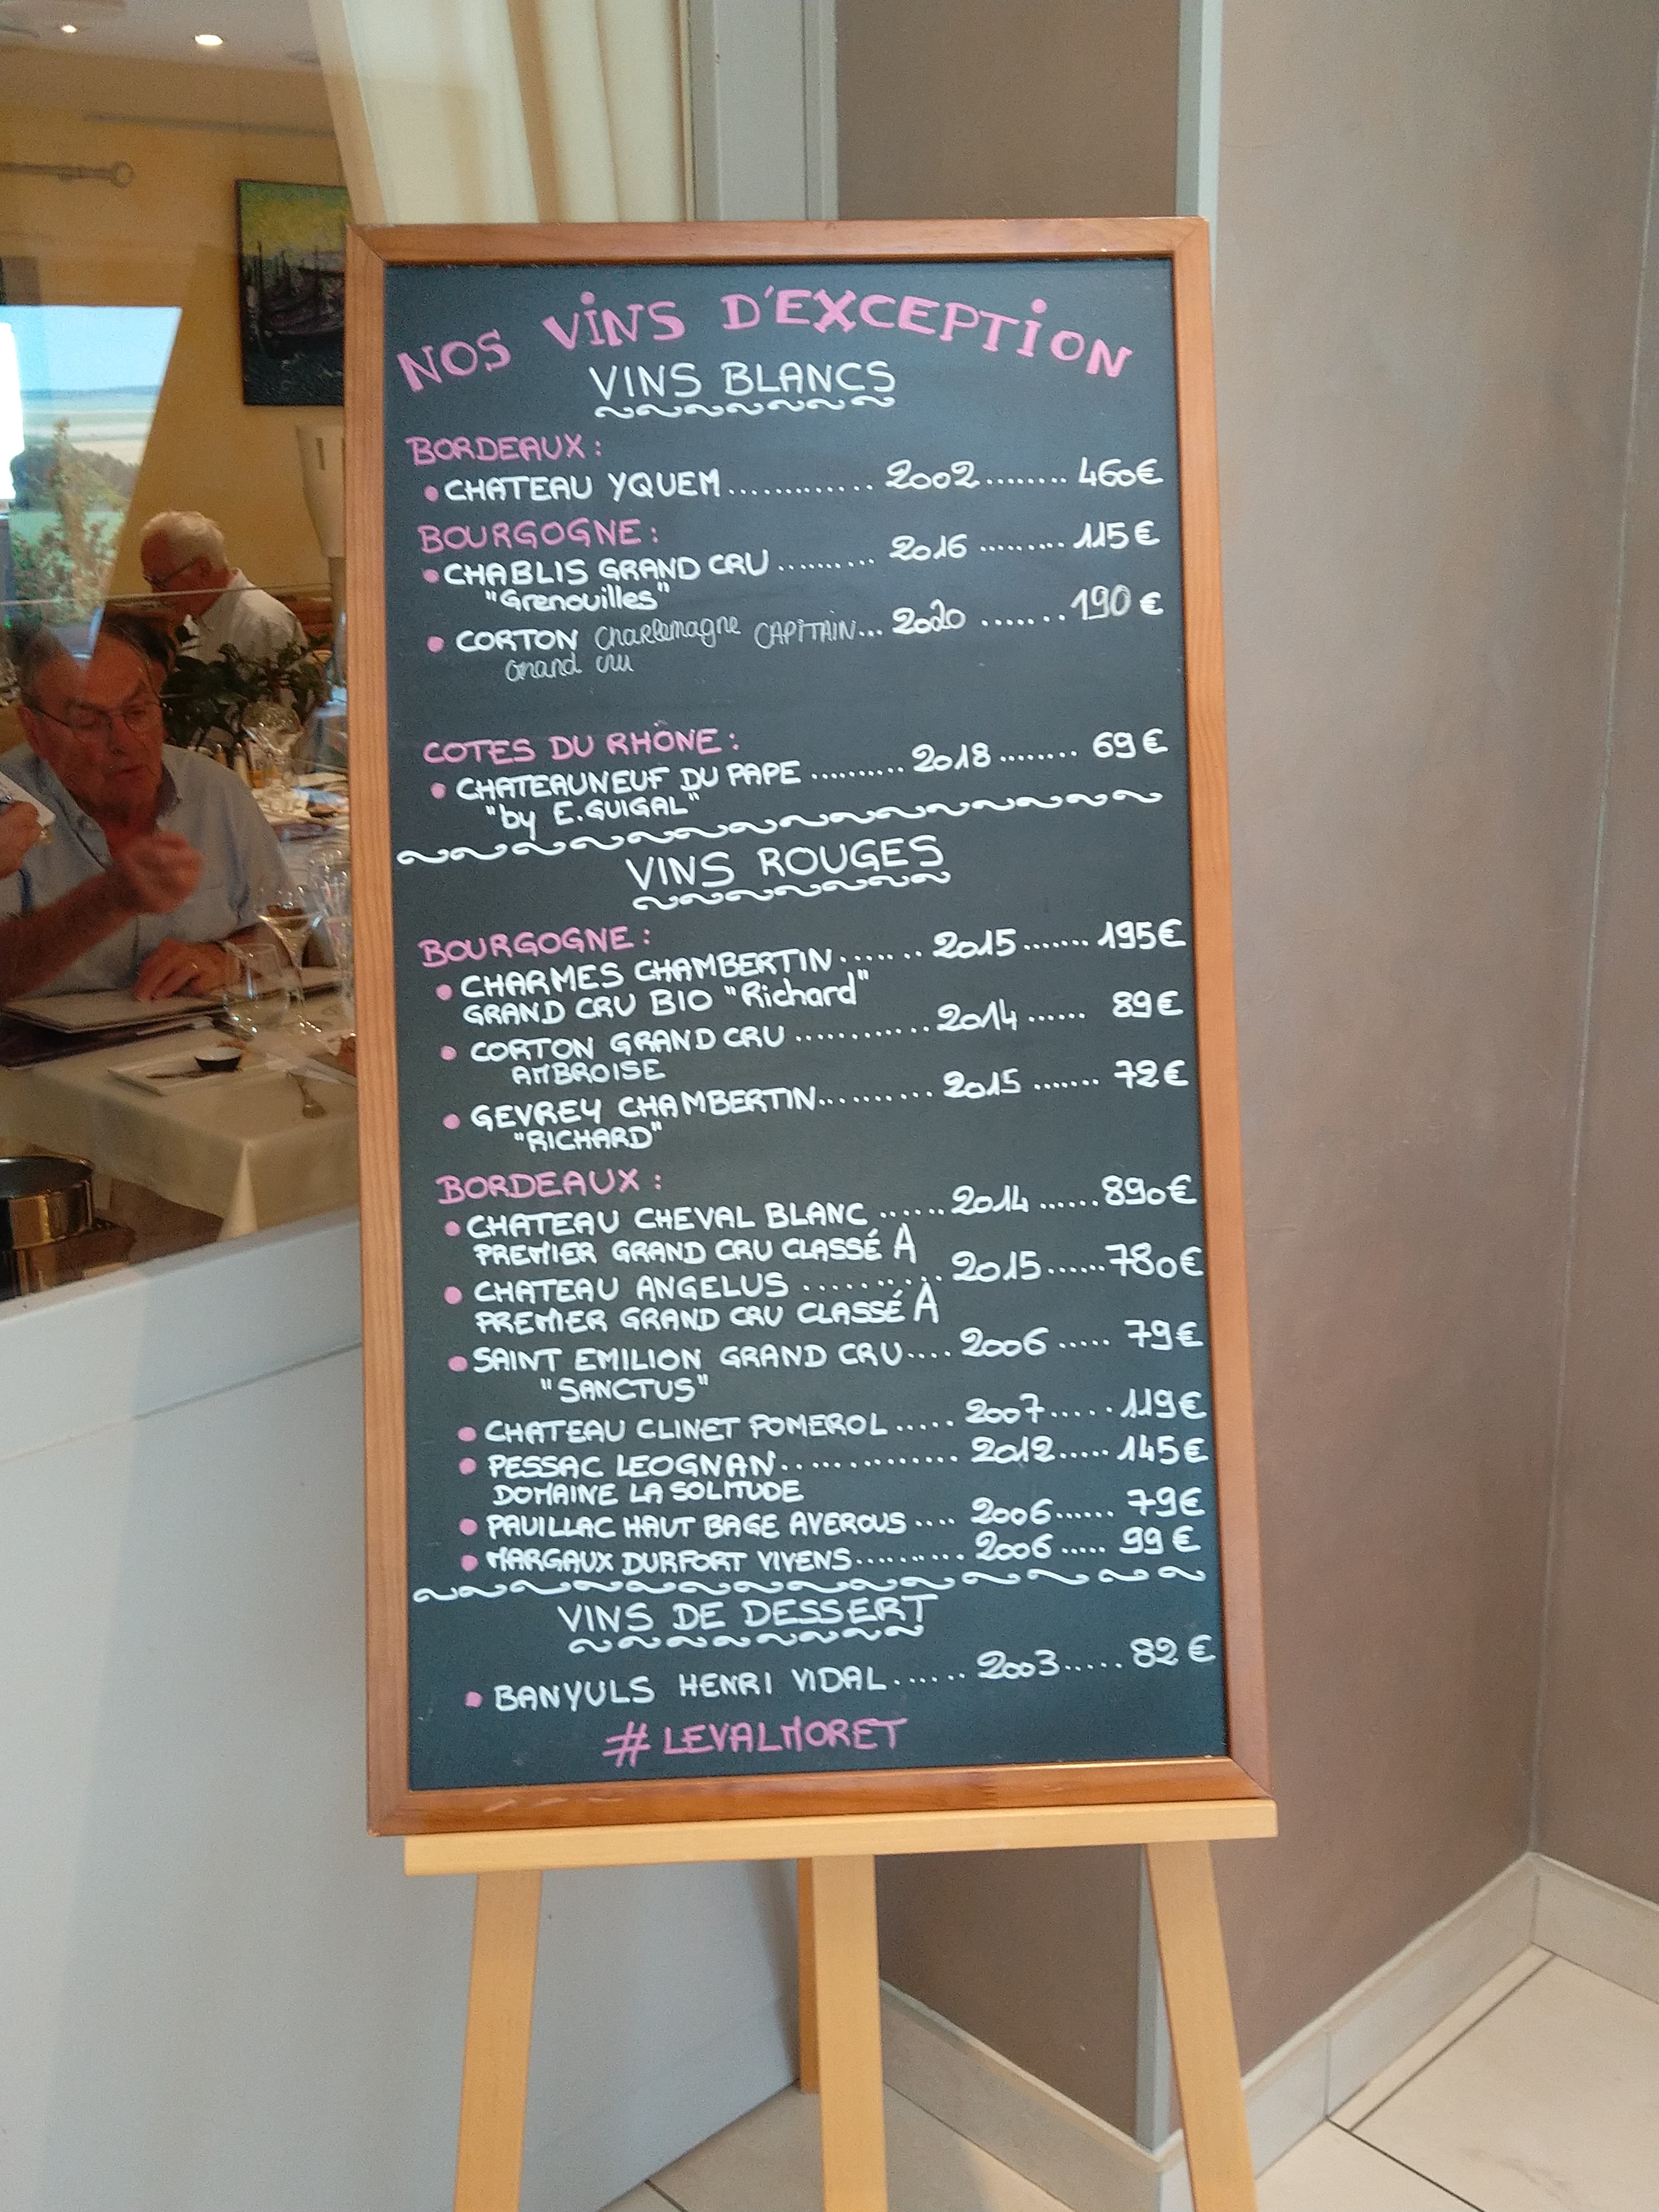 NOS VINS D'EXCEPTION
VINS BLANCS
BORDEAUX :
• CHATEAU YQUEM............. 2002........ 460€
BOURGOGNE :
• CHABLIS GRAND CRU .......... 2016 ......... 115€
"Grenouilles"
• CORTON Charlemagne CAPITAIN... 2020 ....... 190 €
Grand cru
COTES DU RHÔNE :
• CHATEAUNEUF DU PAPE .......... 2018........ 69€
"by E.GUIGAL"
VINS ROUGES
BOURGOGNE :
• CHARMES CHAMBERTIN ....... 2015....... 195€
GRAND CRU BIO "Richard"
• CORTON GRAND CRU ............ 2014 ...... 89€
AMBROISE
• GEVREY CHAMBERTIN.......... 2015 ....... 72€
"RICHARD"
BORDEAUX :
• CHATEAU CHEVAL BLANC ...... 2014 ...... 890€
PREMIER GRAND CRU CLASSÉ A
• CHATEAU ANGELUS .......... 2015...... 780€
PREMIER GRAND CRU CLASSÉ A
• SAINT EMILION GRAND CRU.... 2006 ..... 79€
"SANCTUS"
• CHATEAU CLINET POMEROL ..... 2007..... 119€
• PESSAC LEOGNAN ............. 2012..... 145€
DOMAINE LA SOLITUDE
• PAUILLAC HAUT BAGE AVEROUS .... 2006...... 79€
• MARGAUX DURFORT VIVENS.......... 2006 ..... 99€
VINS DE DESSERT
• BANYULS HENRI VIDAL...... 2003..... 82€
# LEVALMORET